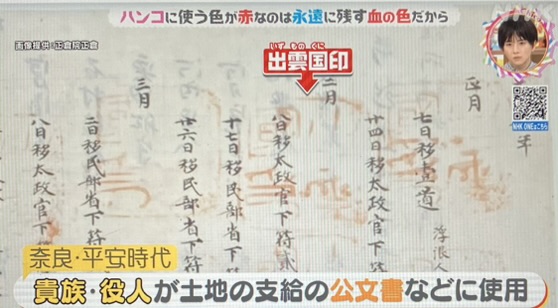 ハンコに使う色が赤なのは永遠に残す血の色だから
画像提供:正倉院正倉
いずものくに
出雲国印
NHK ONEはこちら
年
正月
七日移壹道
浮浪人
廿四日移太政官下符
二月
八日移太政官下符貳
十七日移民部省下符
廿六日移民部省下符
三月
二日移民部省下符
八日移太政官下符
奈良・平安時代
貴族・役人が土地の支給の公文書などに使用